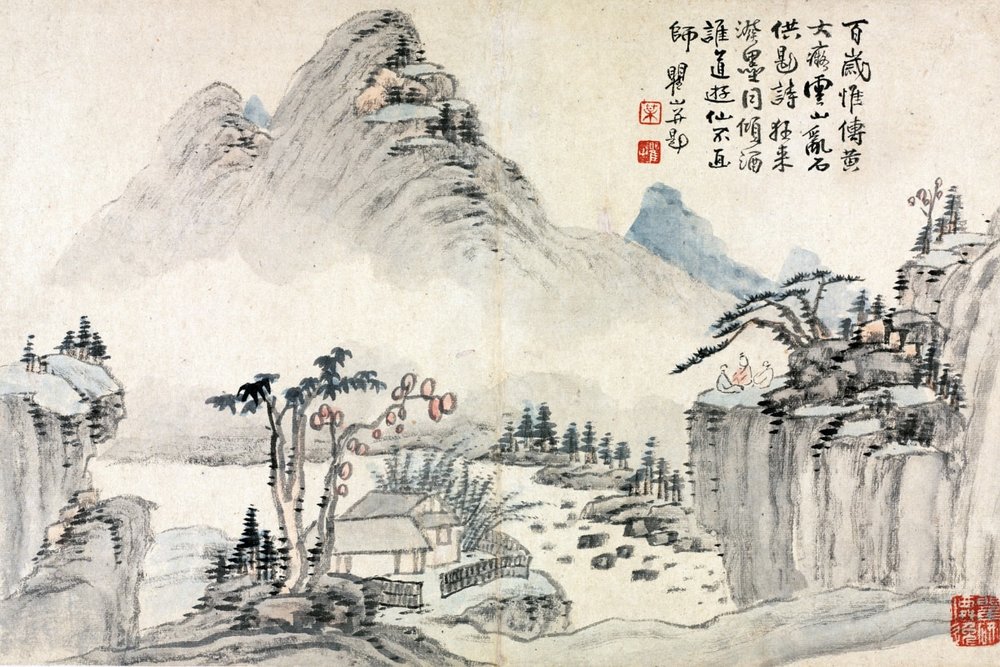 百歲惟傳黃
大癡雲山亂石
供題詩狂來
潑墨因傾酒
誰道遊仙不
師 瞿山并題